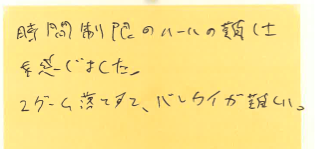 時間制限のルールの難しさ
を感じました。
2ゲーム落とすと、バレカイが難しい。